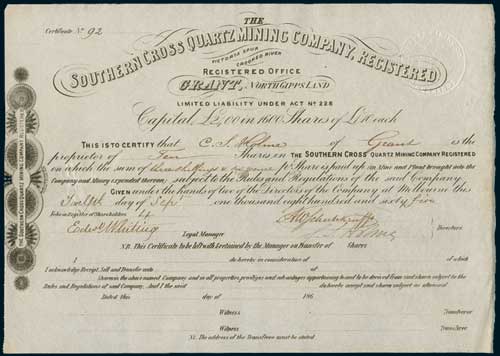 Certificate No 92
THE
SOUTHERN CROSS QUARTZ MINING COMPANY, REGISTERED
VICTORIA SPUR
CROOKED RIVER
REGISTERED OFFICE
GRANT, NORTH GIPPS LAND
LIMITED LIABILITY UNDER ACT No 228
Capital, in 1600 Shares of each
THIS IS TO CERTIFY that C. S. Holme of Grant is the
proprietor of Ten Shares in THE SOUTHERN CROSS QUARTZ MINING COMPANY REGISTERED
on which the sum of Share is paid up in Mine and Plant brought into the
Company and Money expended thereon, subject to the Rules and Regulations of the said Company
GIVEN under the hands of two of the Directors of the Company at Melbourne this
Twelfth day of Sept one thousand eight hundred and sixty five
Folio in Register of Shareholders 4
Edwd Whiting
Legal Manager
Directors
NB. This Certificate to be left with & retained by the Manager on Transfer of Shares
I do hereby in consideration of of which
I acknowledge Receipt, Sell and Transfer unto
Shares in the above named Company and in all properties privileges and advantages appertaining to and to be derived from said shares subject to the
Rules and Regulations of said Company. And I the said do hereby accept said shares subject as aforesaid
Dated this day of 186
Witness Transferor
Witness Transferee
NB. The address of the Transferee must be stated
THE SOUTHERN CROSS QUARTZ MINING COMPANY REGISTERED